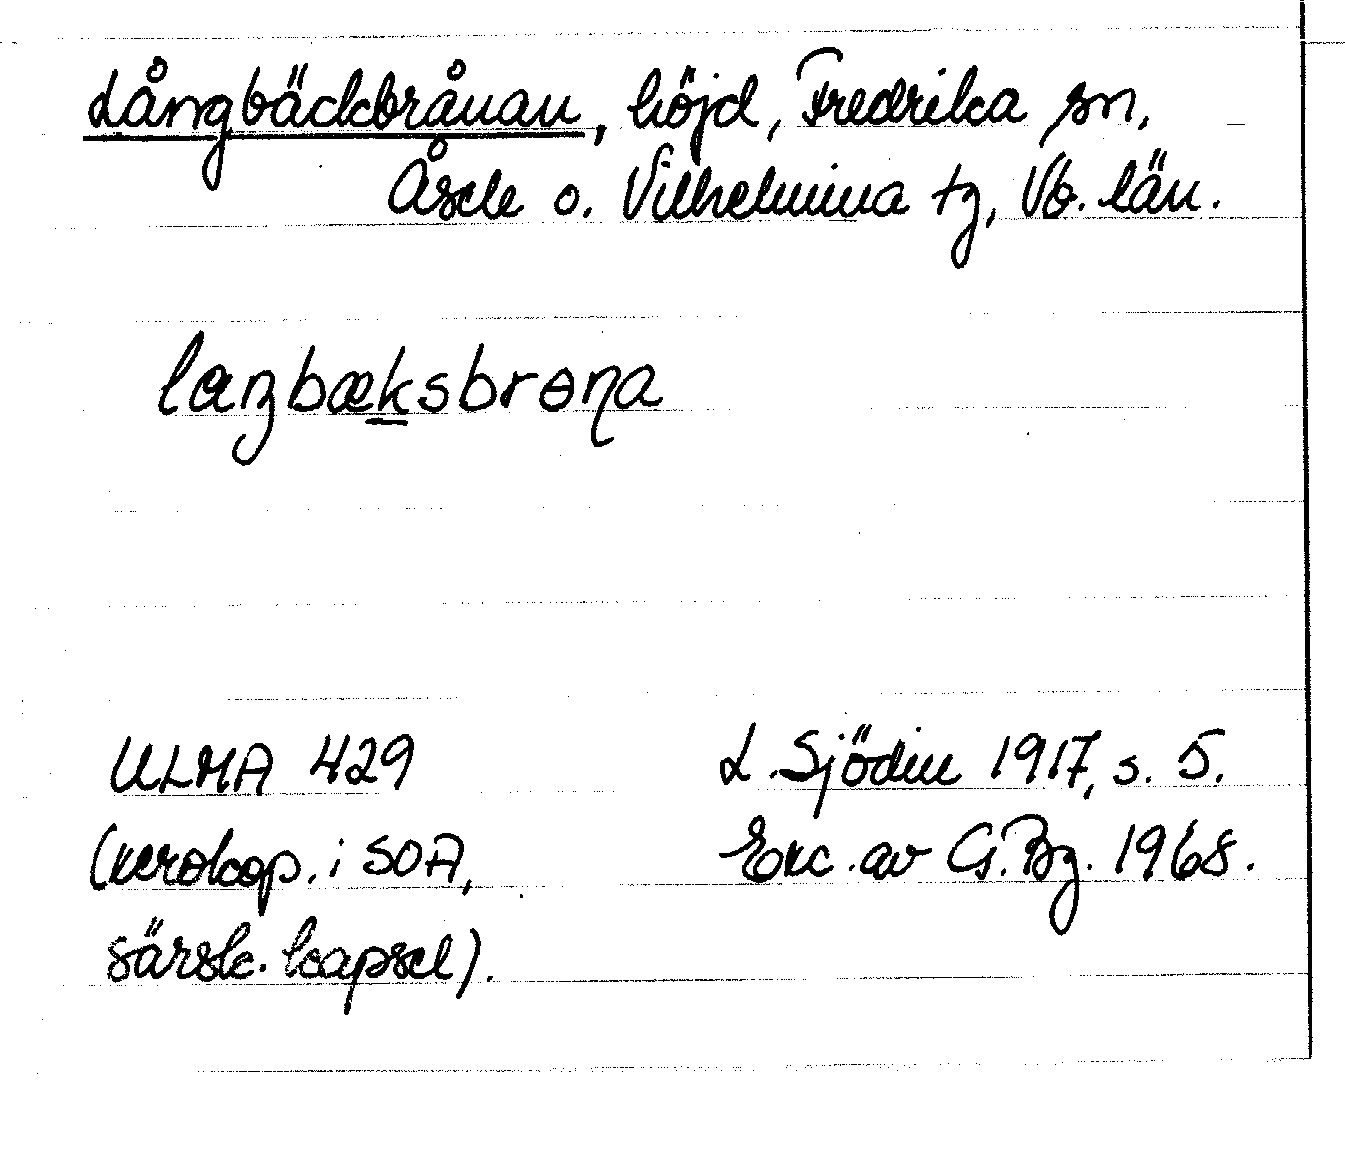 Långbäckbrånan, höjd, Fredrika sn,
Åsele o. Vilhelmina tg, Vb. län.
laŋbæksbrɵna
ULMA 429
L. Sjödin 1917, s. 5.
(xerokop. i SOA,
Exc. av G. Bg. 1968.
särsk. kapsel).